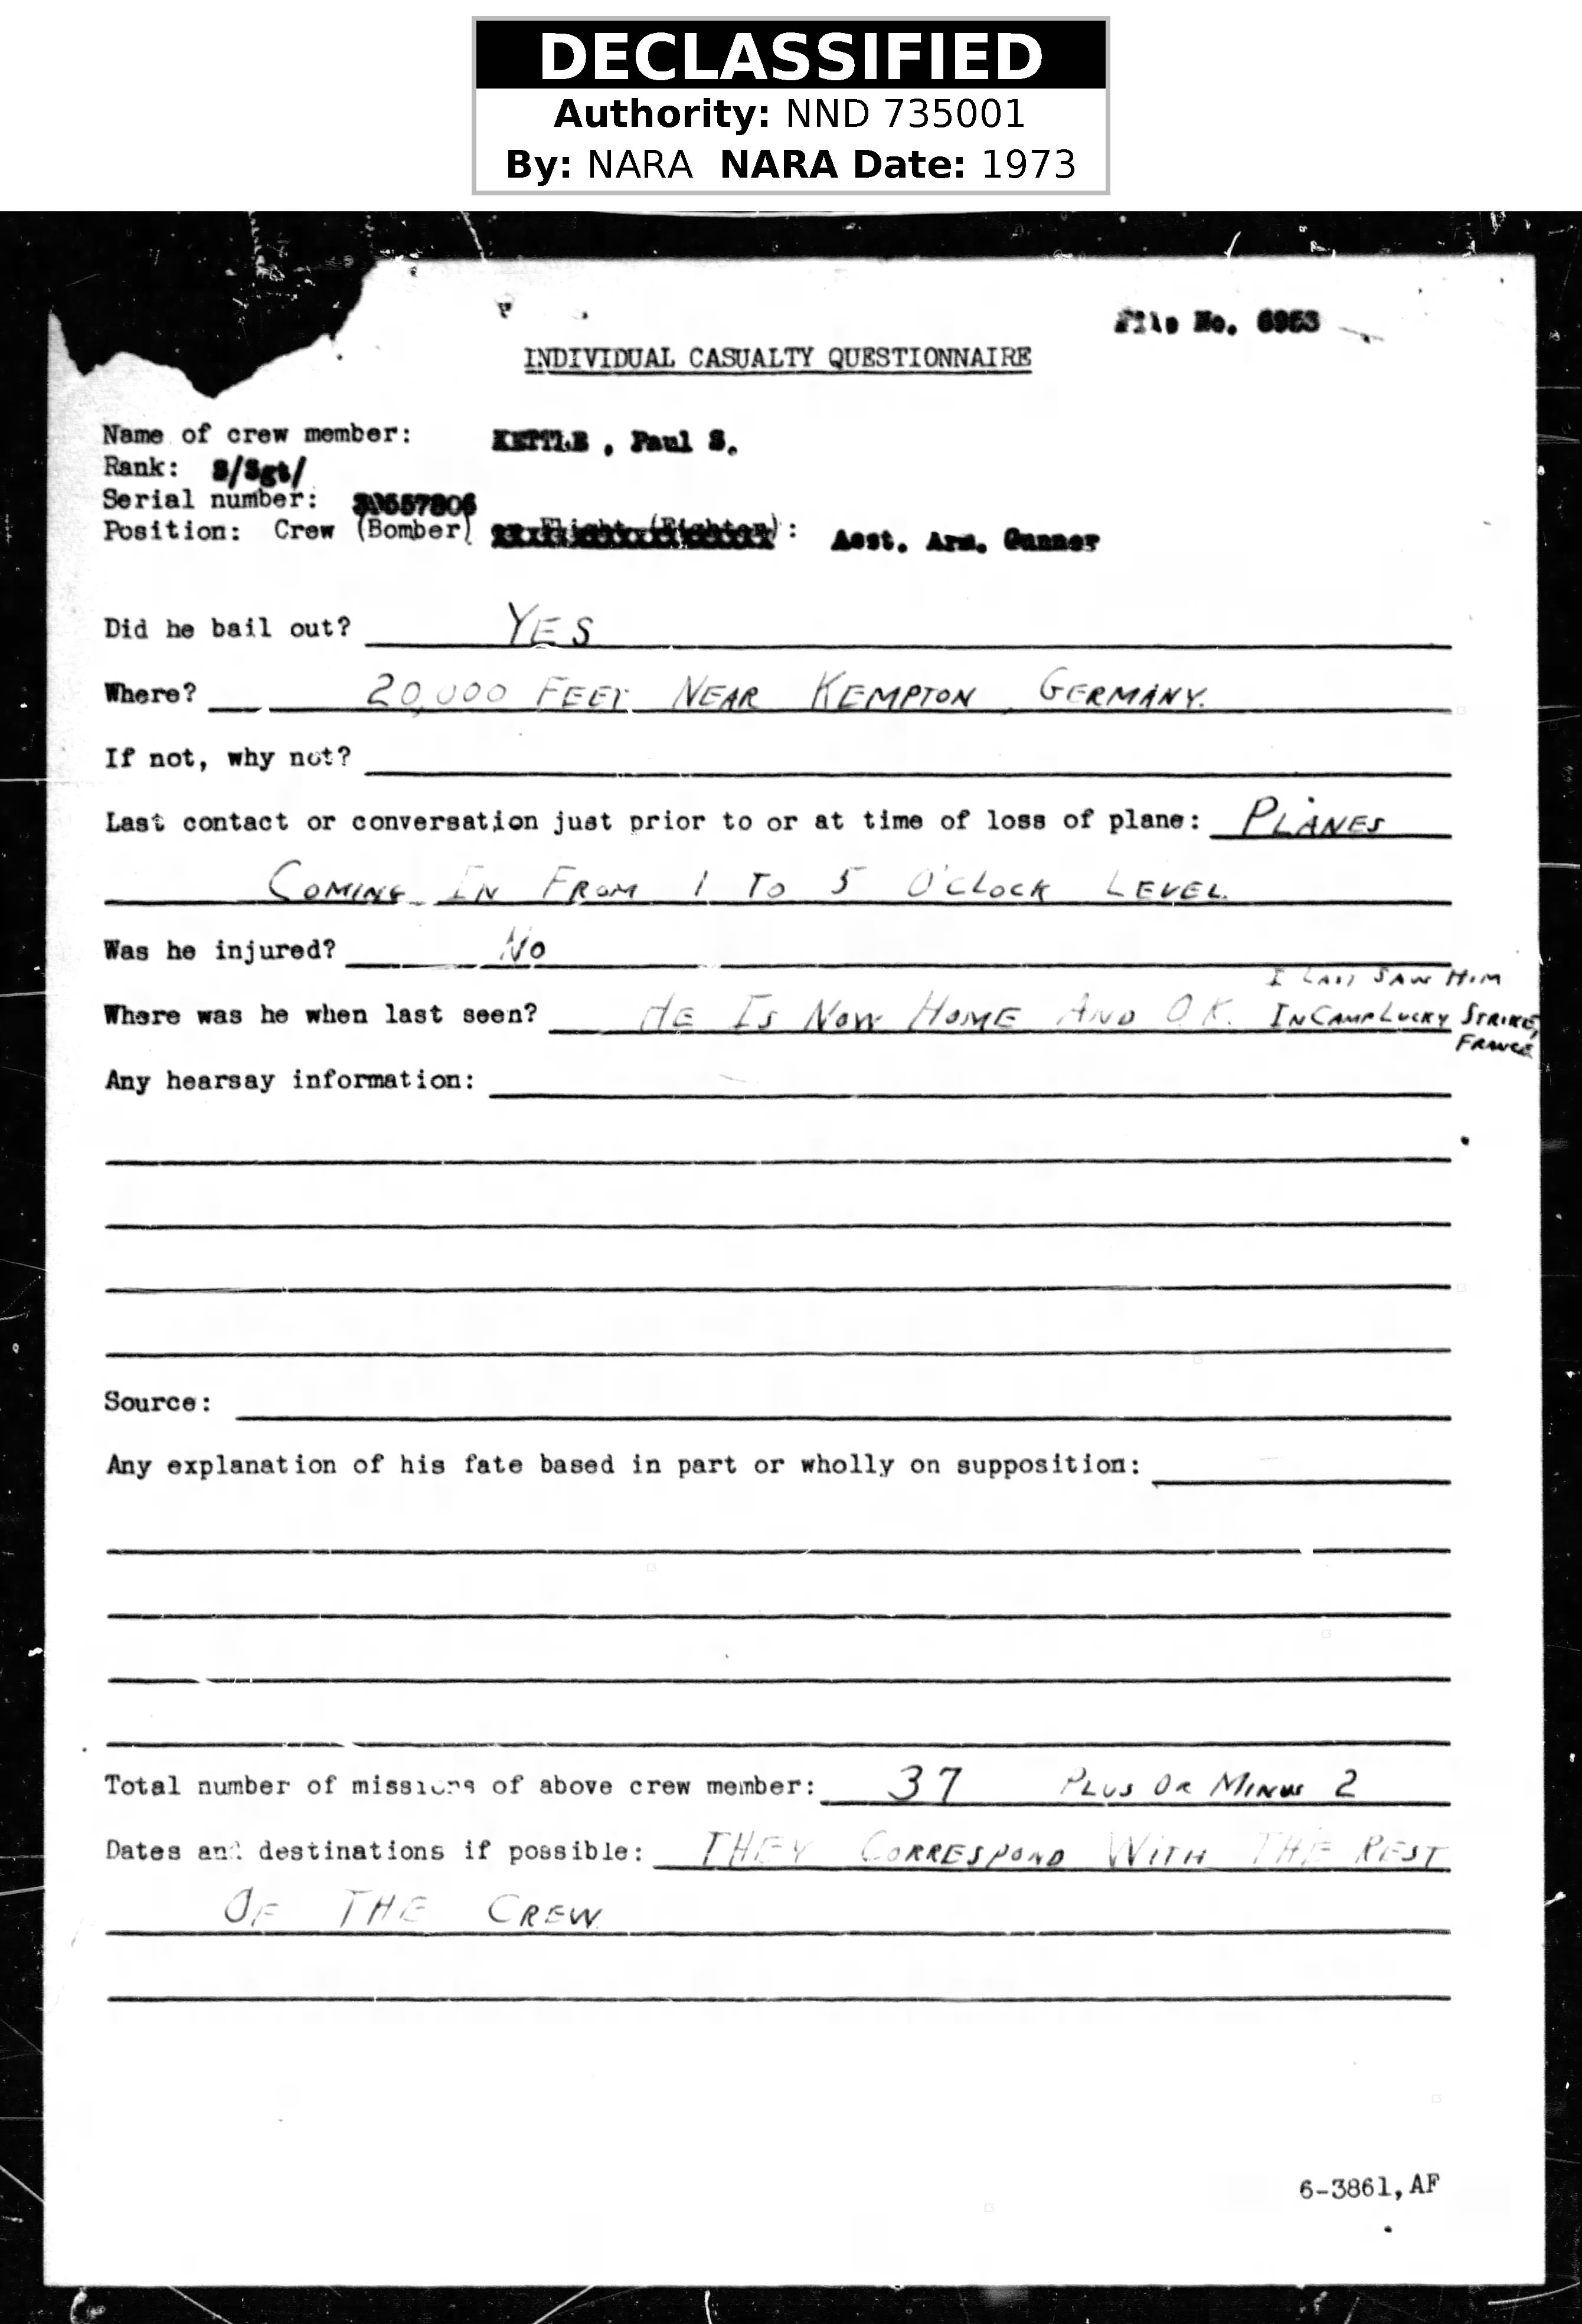 DECLASSIFIED
Authority: NND 735001
By: NARA NARA Date: 1973
File No. 6953
INDIVIDUAL CASUALTY QUESTIONNAIRE
Name of crew member: KETTLE , Paul S.
Rank: S/Sgt/
Serial number:
Position: Crew (Bomber) : Asst. Arm. Gunner
Did he bail out? YES
Where? 20,000 FEET NEAR KEMPTON GERMANY.
If not, why not?
Last contact or conversation just prior to or at time of loss of plane: PLANES
COMING IN FROM 1 TO 5 O'CLOCK LEVEL.
Was he injured? NO
I LAST SAW HIM
Where was he when last seen? HE IS NOW HOME AND O.K. IN CAMP LUCKY STRIKE,
FRANCE
Any hearsay information:
Source:
Any explanation of his fate based in part or wholly on supposition:
Total number of missions of above crew member: 37 PLUS OR MINUS 2
Dates and destinations if possible: THEY CORRESPOND WITH THE REST
OF THE CREW
6-3861, AF